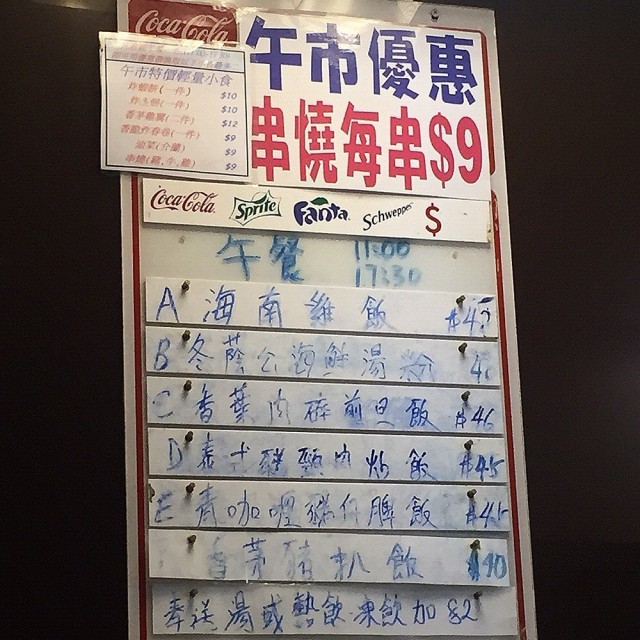 Coca-Cola
午市優惠
串燒每串$9
午市特價輕量小食
炸蝦餅(一件) $10
炸魚餅(一件) $10
香茅雞翼(二件) $12
香脆炸春卷(一件) $9
油菜(介蘭) $9
串燒(豬,牛,雞) $9
Coca-Cola Sprite Fanta Schweppes $
午餐 11:00
17:30
A 海南雞飯
B 冬蔭公海鮮湯粉
C 香葉肉碎煎旦飯 $46
D 泰式豬頸肉炒飯 $45
E 青咖喱豬仔脾飯
香茅豬扒飯 $40
奉送湯或熱飲凍飲加$2